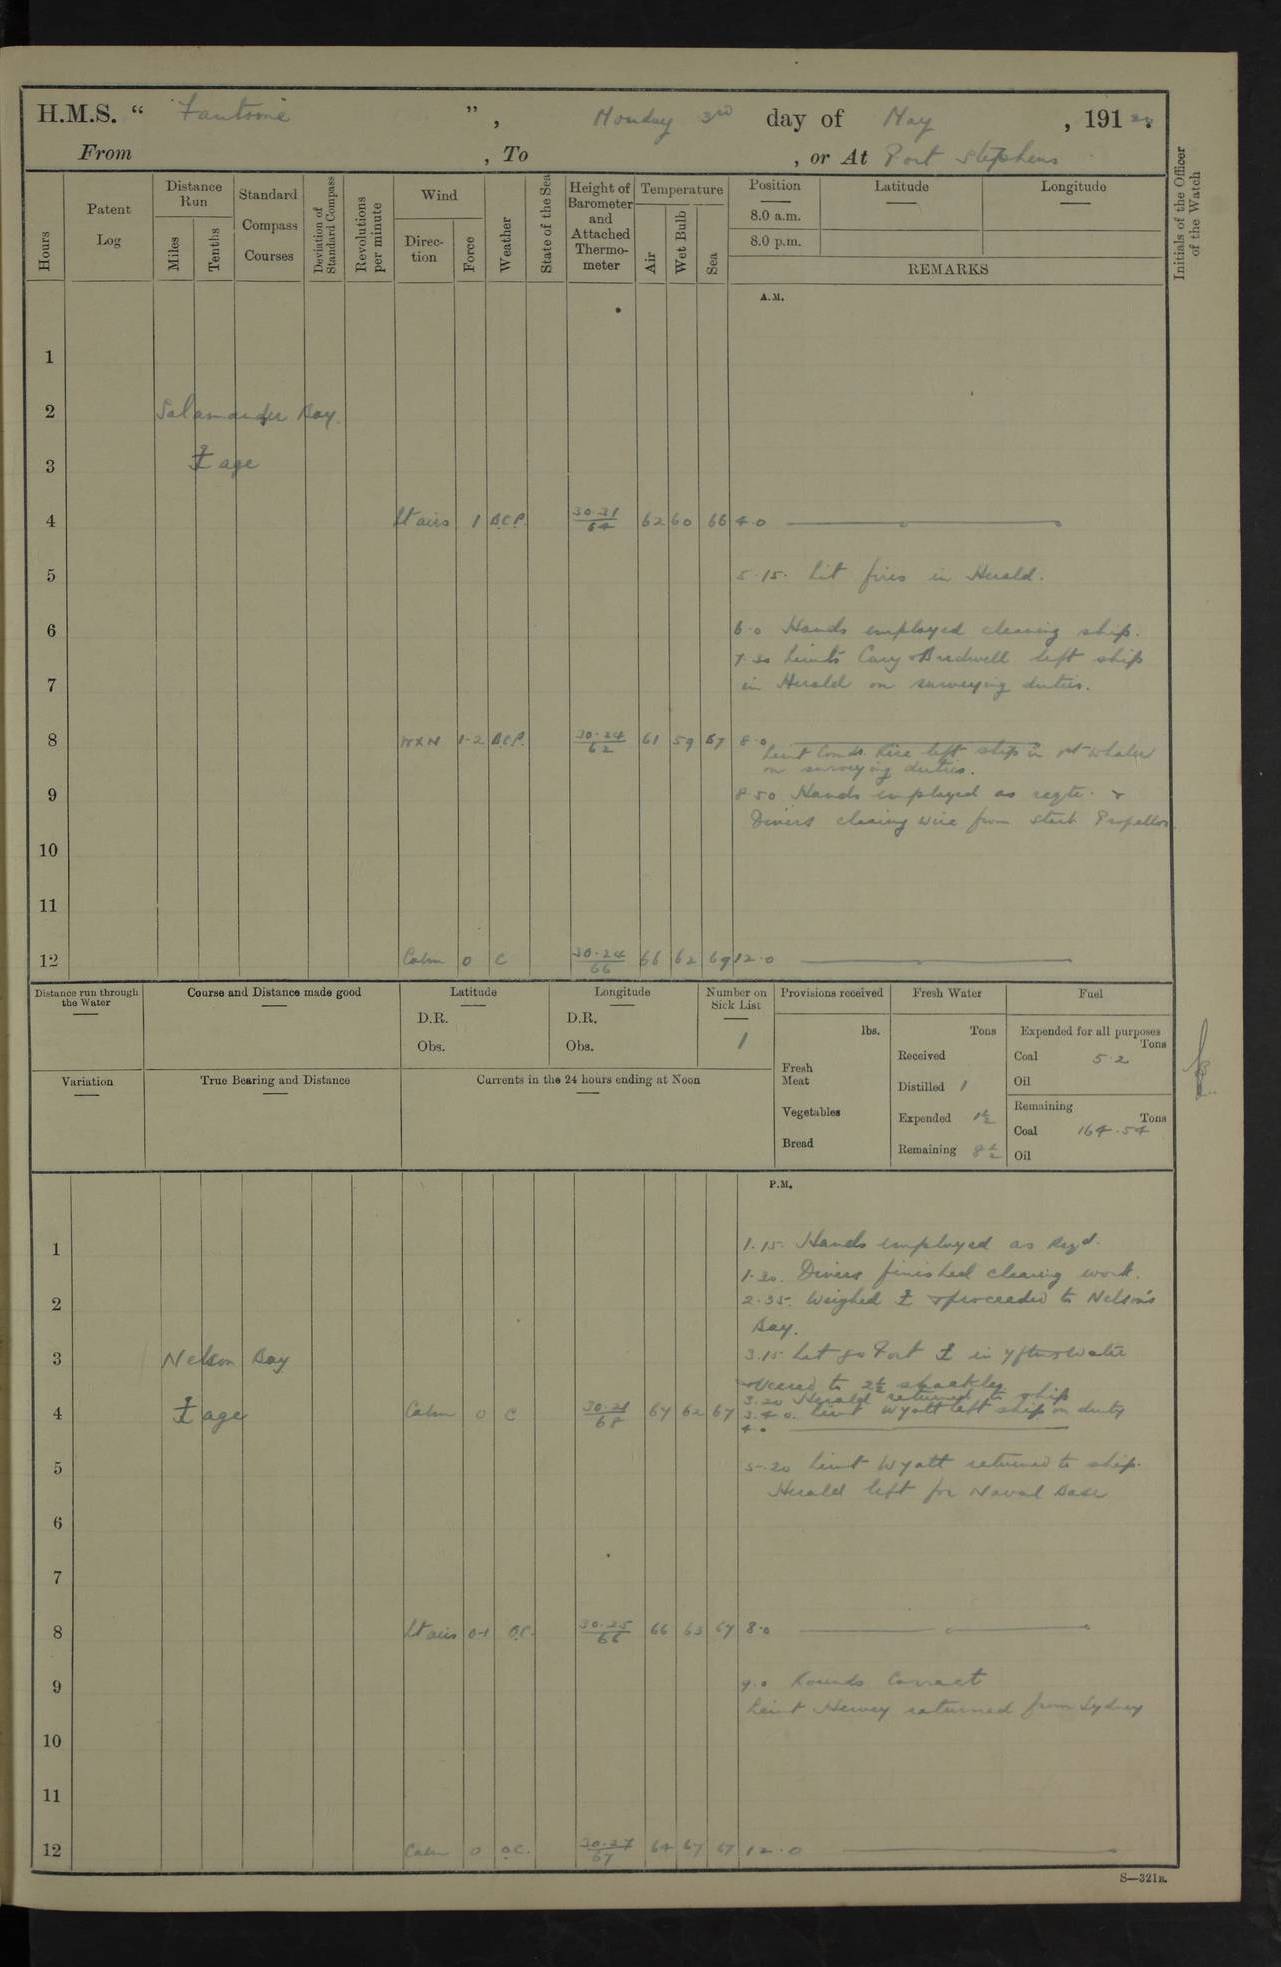 H.M.S. “ Fantome ” , Monday 3rd day of May , 191 20 .
From , To , or At Port Stephens
Hours
Patent Log
Distance Run
Miles
Tenths
Standard Compass Courses
Deviation of Standard Compass
Revolutions per minute
Wind
Direction
Force
Weather
State of the Sea
Height of Barometer and Attached Thermometer
Temperature
Air
Wet Bulb
Sea
Position
8.0 a.m.
8.0 p.m.
Latitude
Longitude
REMARKS
Initials of the Officer of the Watch
A.M.
1
2 Salamander Bay
3 ⚓ age
4 Lt airs 1 B.C.P. 30.31/64 62 60 66 4.0
5 5.15. Lit fires in Herald.
6 6.0 Hands employed cleaning ship.
7.30 Lieuts Cary & Bredwell left ship
7 in Herald on surveying duties.
8 WxN 1-2 B.C.P. 30.24/62 61 59 67 8.0
Lieut Comdr. Rice left ship in whaler
on surveying duties.
9 8.50 Hands employed as reqte. &
Divers clearing wire from Starb Propellor
10
11
12 Calm 0 C 30.24/66 66 62 69 12.0
Distance run through the Water
Course and Distance made good
Latitude
D.R.
Obs.
Longitude
D.R.
Obs.
Number on Sick List
1
Provisions received
lbs.
Fresh Meat
Vegetables
Bread
Fresh Water
Tons
Received
Distilled 1
Expended 1½
Remaining 8½
Fuel
Expended for all purposes
Tons
Coal 5.2
Oil
Remaining
Tons
Coal 164.54
Oil
Variation
True Bearing and Distance
Currents in the 24 hours ending at Noon
P.M.
1 1.15. Hands employed as Reqd.
1.30. Divers finished clearing work.
2 2.35. Weighed ⚓ & proceeded to Nelson's
Bay.
3 Nelson Bay 3.15 Let go Port ⚓ in 7 fths water
& veered to 2½ shackles
3.20 Herald returned to ship
4 ⚓ age Calm 0 C 30.21/68 67 62 67 3.40. Lieut Wyatt left ship on duty
4.0
5 5.20 Lieut Wyatt returned to ship.
Herald left for Naval Base
6
7
8 Lt airs 0-1 O.C. 30.25/66 66 63 67 8.0
9 9.0 Rounds Correct
Lieut Hervey returned from Sydney
10
11
12 Calm 0 O.C. 30.27/67 64 67 67 12.0
S—321B.